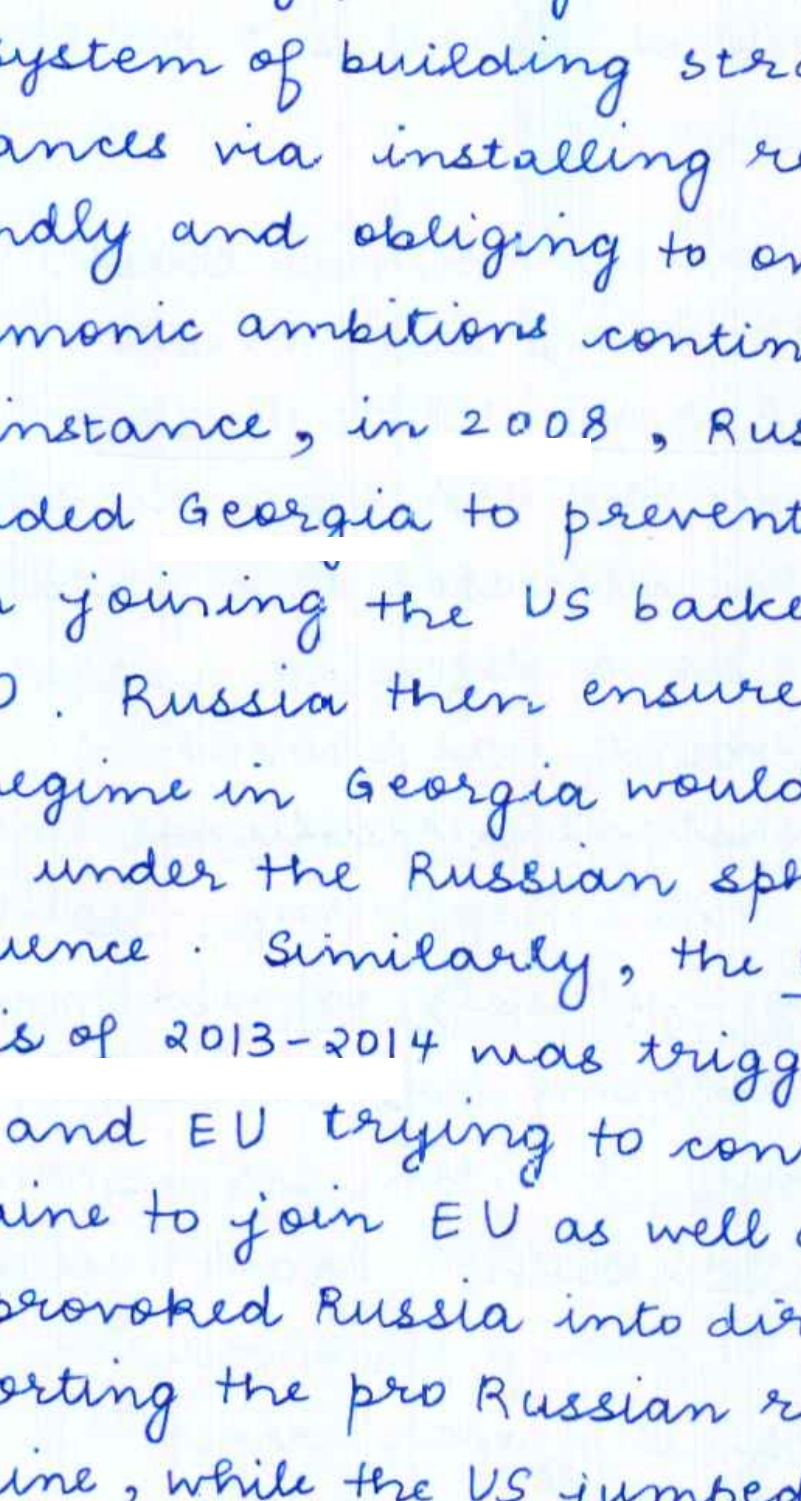 ystem of building stra
ances via installing re
ndly and obliging to on
monic ambitions contin
instance, in 2008, Rus
ded Georgia to prevent
joining the US backe
. Russia then ensure
egime in Georgia would
under the Russian sph
uence. Similarly, the
is of 2013-2014 was trigg
and EU trying to con
aine to join EU as well
provoked Russia into dir
orting the pro Russian r
ine, while the US jumped